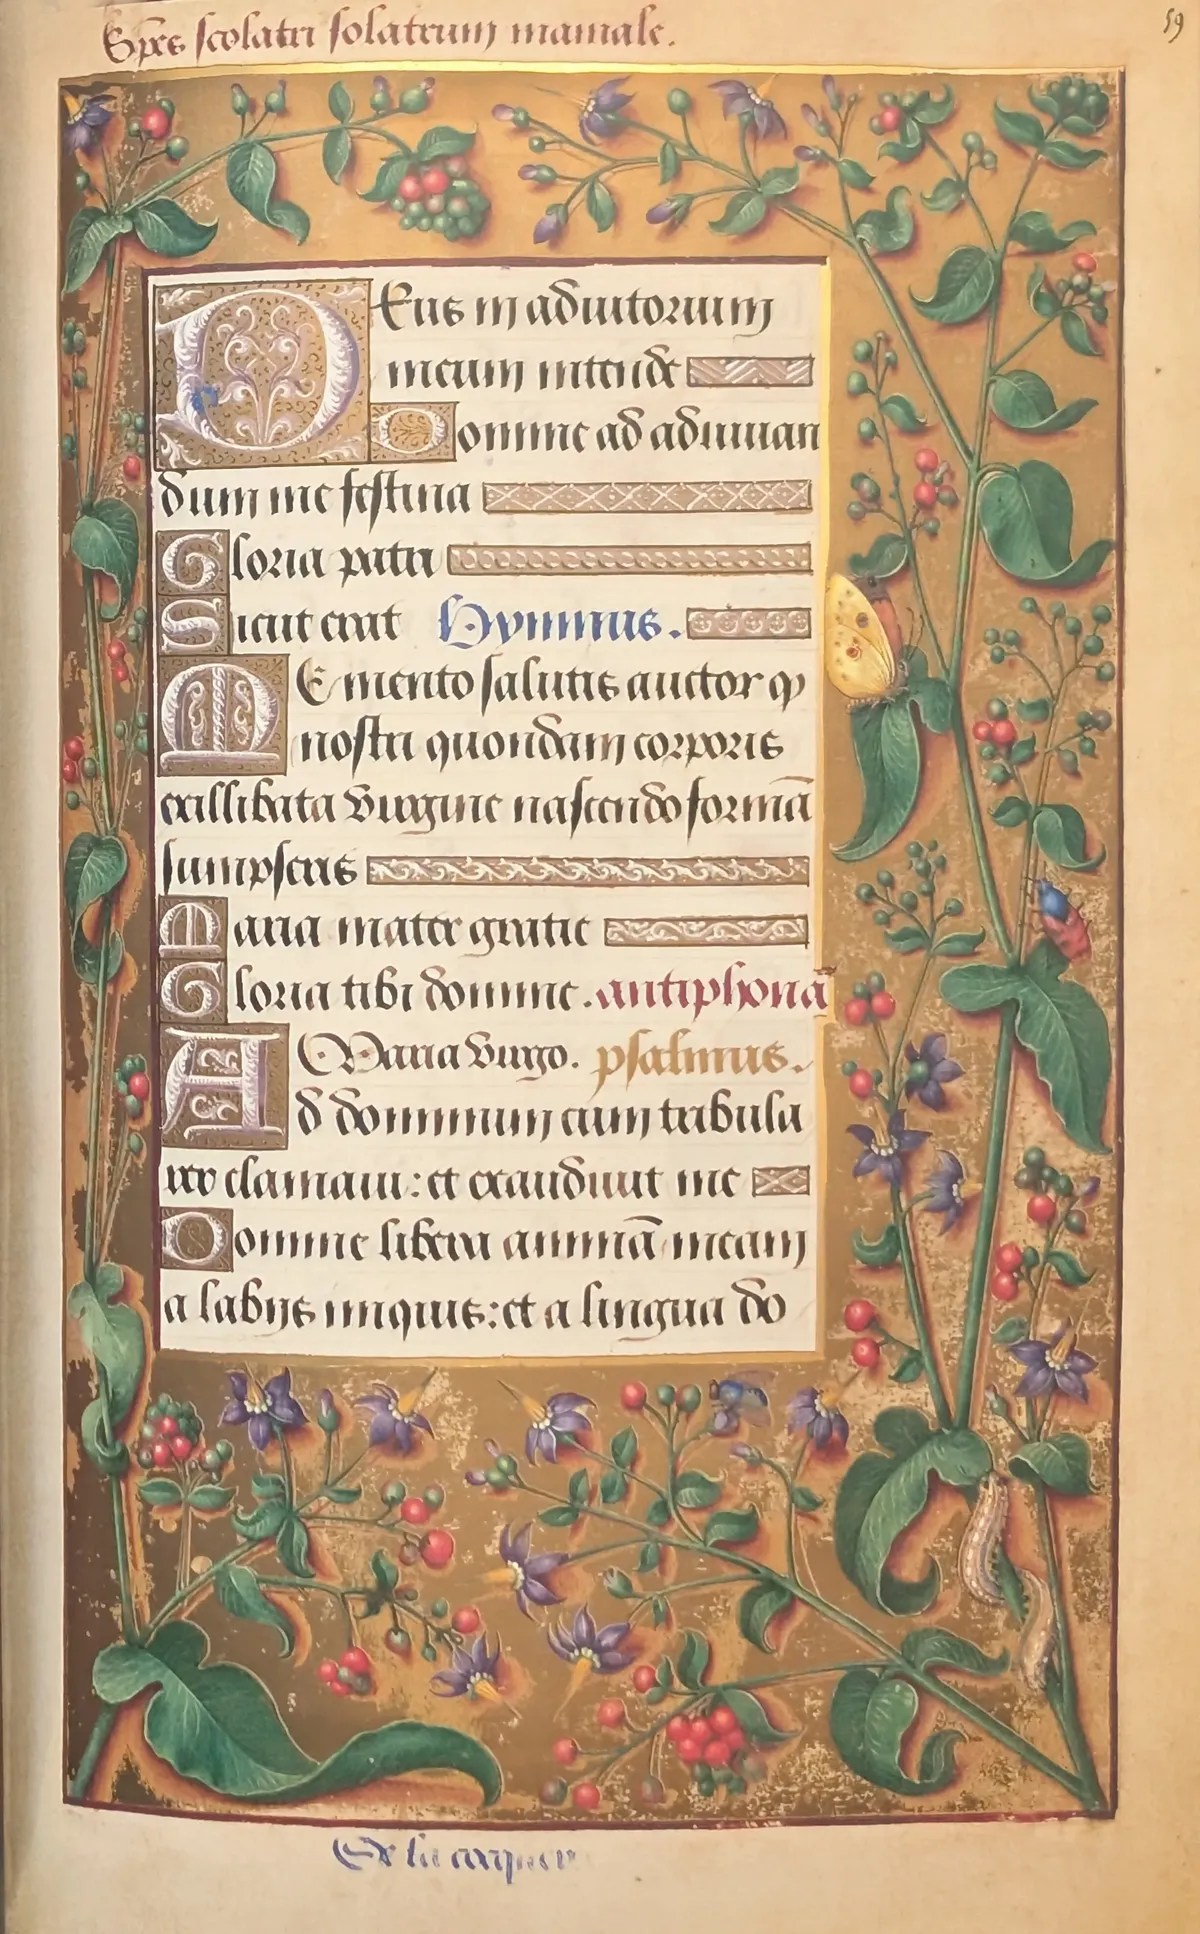 Spēs scolatri solatrum maniale.
59
DEus in adiutorium
meum intende
Domine ad adiuuan
dum me festina
Gloria patri
Sicut erat Hymnus.
MEmento salutis auctor q̄
nostri quondam corporis
exillibata virgine nascendo formā
sumpseris
Maria mater gratie
Gloria tibi domine. antiphonā
Maria virgo. psalmus.
Ad dominum cum tribula
rer clamaui: et exaudiuit me
Domine libera animā meam
a labijs iniquis: et a lingua do
De la